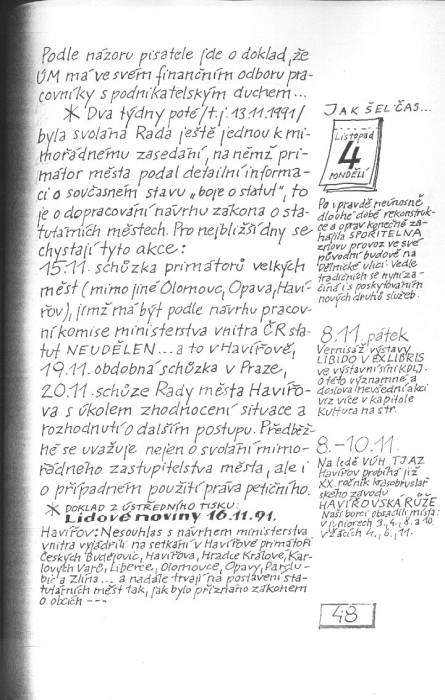 Podle názoru pisatele jde o doklad, že
ÚM má ve svém finančním odboru pra-
covníky s podnikatelským duchem...
* Dva týdny poté /t.j. 13.11.1991/
byla svolána Rada ještě jednou k mi-
mořádnému zasedání, na němž pri-
mátor města podal detailní informa-
ci o současném stavu „boje o statut", to
je o dopracování návrhu zákona o sta-
tutárních městech. Pro nejbližší dny se
chystají tyto akce:
15.11. schůzka primátorů velkých
měst (mimo jiné Olomouc, Opava, Haví-
řov), jímž má být podle návrhu pracov-
ní komise ministerstva vnitra ČR sta-
tut NEUDĚLEN... a to v Havířově,
19.11. obdobná schůzka v Praze,
20.11. schůze Rady města Havířo-
va s úkolem zhodnocení situace a
rozhodnutí o dalším postupu. Předběž-
ně se uvažuje nejen o svolání mimo-
řádného zastupitelstva města, ale i
o případném použití práva petičního.
* DOKLAD Z ÚSTŘEDNÍHO TISKU:
Lidové noviny 16.11.91.
Havířov: Nesouhlas s návrhem ministerstva
vnitra vyjádřili na setkání v Havířově primátoři
Českých Budějovic, Havířova, Hradce Králové, Kar-
lových Varů, Liberce, Olomouce, Opavy, Pardu-
bic a Zlína... a nadále trvají na postavení sta-
tutárních měst tak, jak bylo přiznáno zákonem
o obcích ---
JAK ŠEL ČAS...
Listopad
4
PONDĚLÍ
Po vpravdě neúnosně
dlouhé době rekonstruk-
ce a oprav konečně za-
hájila SPOŘITELNA
zpovu provoz ve své
původní budově na
Dělnické ulici. Vedle
tradičních se nyní za-
číná i s poskytováním
nových druhů služeb.
8.11. pátek
Vernisáž výstavy
LIBIDO V EXLIBRIS
ve výstavní síni KDLJ.
O této významné a
doslova nevšední akci
viz více v kapitole
Kultura na str.
8.-10.11.
Na ledě VÚH TJ AZ
Havířov probíhá již
XX. ročník krasobruslař-
ského závodu
HAVÍŘOVSKÁ RŮŽE
Naši borci obsadili místa:
v juniorech 3., 4., 8. a 10.
v žácích 4., 6., 11.
48